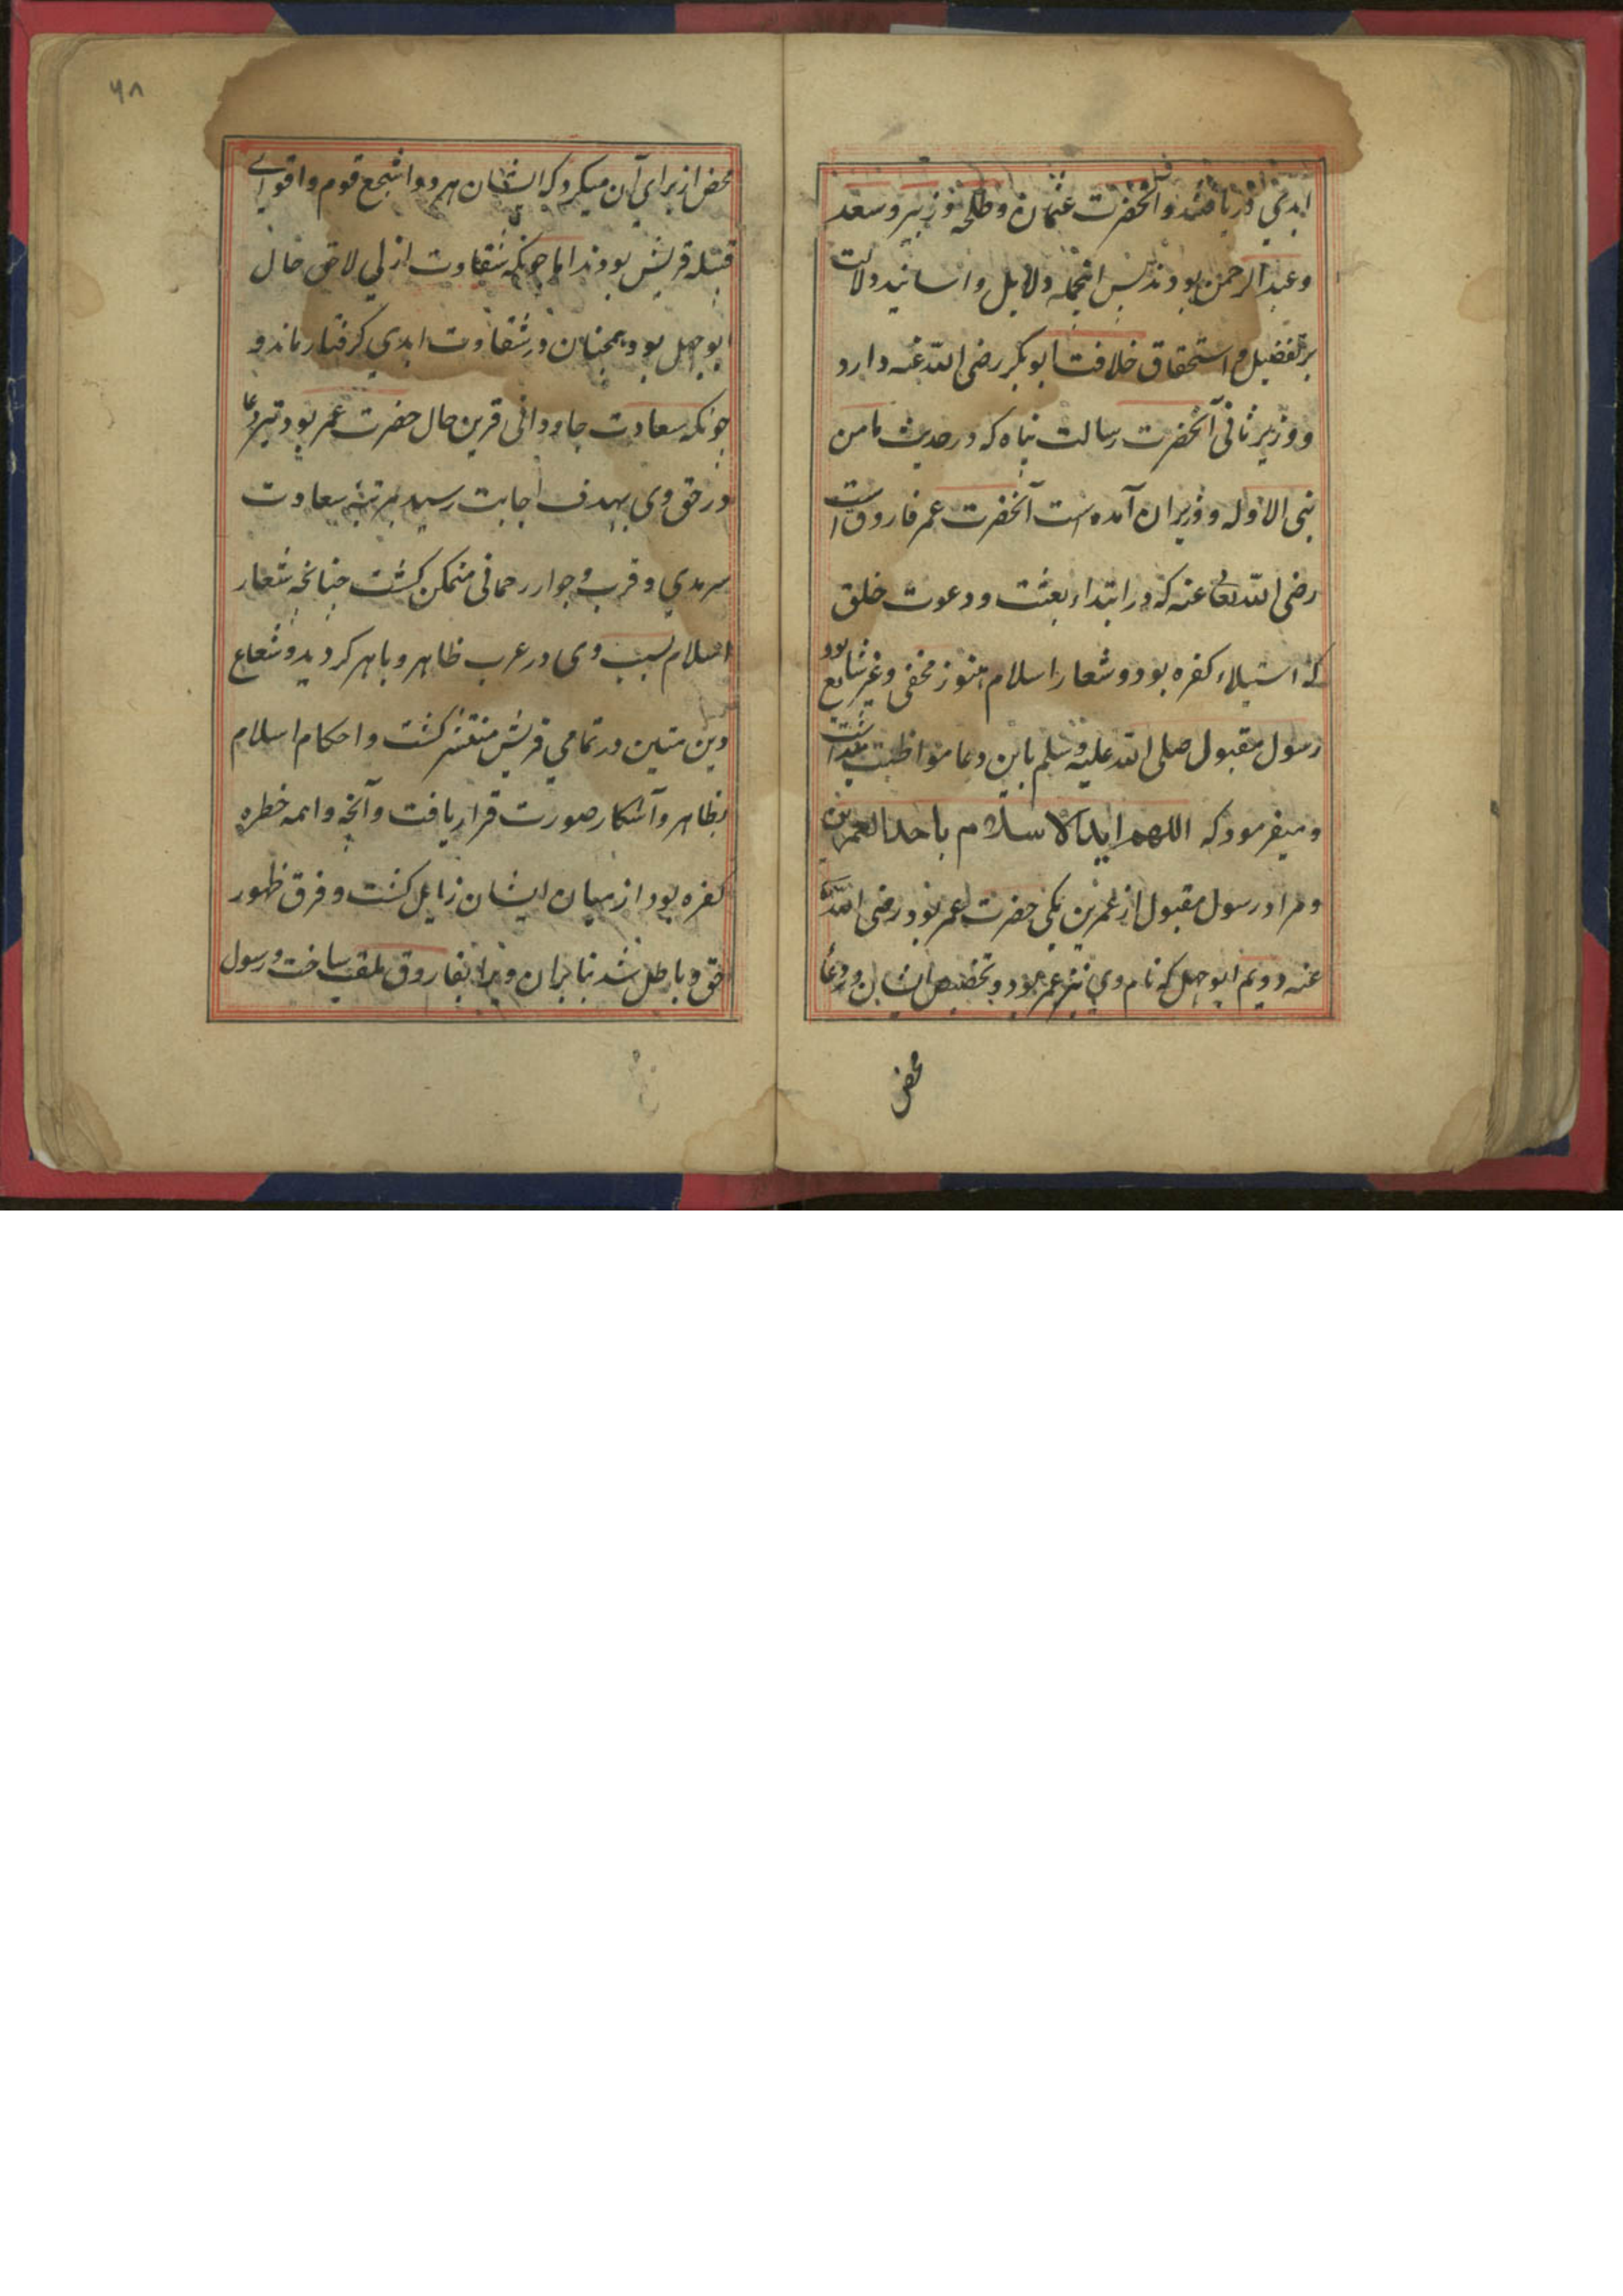 ابدی دریافتند و آنحضرت عثمان و طلحه و زبیر و سعد
و عبد الرحمن بودند پس اینجمله دلایل و اسانید دلالت
بر تفضیل و استحقاق خلافت ابوبکر رضی الله عنه دارد
و وزیر ثانی آنحضرت رسالت پناه که در حدیث ما من
نبی الا وله وزیران آمده است آنحضرت عمر فاروق است
رضی الله تعالی عنه که در ابتداء بعثت و دعوت خلق
که استیلاء کفره بود و شعار اسلام هنوز مخفی و غیر شایع بود
رسول مقبول صلی الله علیه وسلم باین دعا مواظبت میداشت
و میفرمود که اللهم اید الاسلام باحد العمرین
و مراد رسول مقبول از عمرین یکی حضرت عمر بود رضی الله
عنه دویم ابوجهل که نام وی نیز عمر بود و تخصیص ایشان در دعا
محض
۶۸
محض از برای آن میکرد که ایشان هر دو اشجع قوم و اقوای
قبیله قریش بودند اما چونکه شقاوت ازلی لاحق حال
ابوجهل بود همچنان در شقاوت ابدی گرفتار ماند و
چونکه سعادت جاودانی قرین حال حضرت عمر بود تیر دعا
در حق وی بهدف اجابت رسید بمرتبه سعادت
سرمدی و قرب و جوار رحمانی متمکن کشت چنانچه شعار
اسلام بسبب وی در عرب ظاهر و باهر کردید و شعاع
دین متین در تمامی قریش منتشر کشت و احکام اسلام
بظاهر و آشکار صورت قرار یافت و آنچه واهمه خطره
کفره بود از میان ایشان زایل کشت و فرق ظهور
حق و باطل شد بنابران ویرا بفاروق ملقب ساخت و رسول